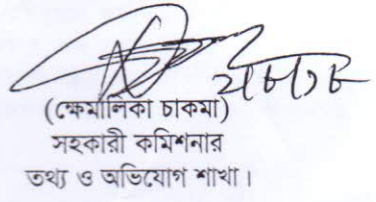 (ক্ষেমালিকা চাকমা)
সহকারী কমিশনার
তথ্য ও অভিযোগ শাখা।